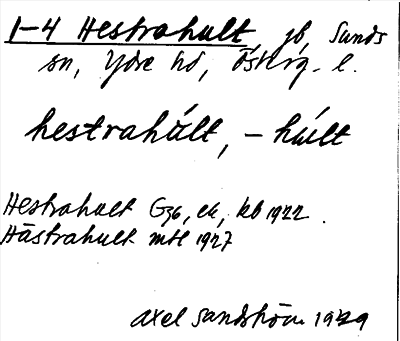 1-4 Hestrahult jb, Sunds
sn, Ydre hd, Österg. l.
hestrahúlt, - húlt
Hestrahult G36, ek, kb 1922.
Hästrahult mtl 1927
Axel Sandström 1929